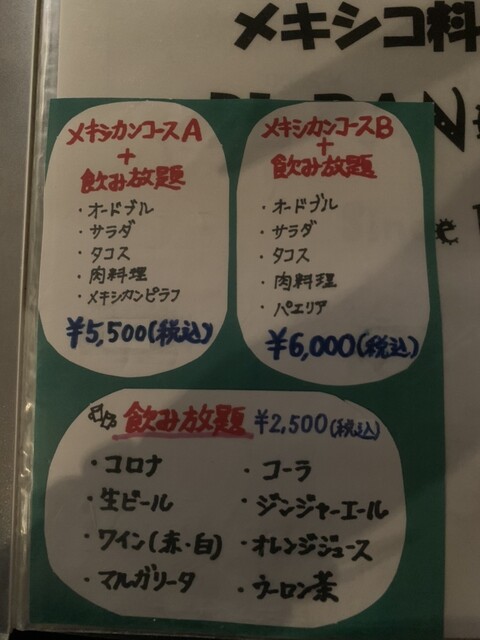 メキシコ料
メキシカンコースA
+
飲み放題
・オードブル
・サラダ
・タコス
・肉料理
・メキシカンピラフ
¥5,500(税込)
メキシカンコースB
+
飲み放題
・オードブル
・サラダ
・タコス
・肉料理
・パエリア
¥6,000(税込)
飲み放題 ¥2,500(税込)
・コロナ
・生ビール
・ワイン(赤・白)
・マルガリータ
・コーラ
・ジンジャーエール
・オレンジジュース
・ウーロン茶